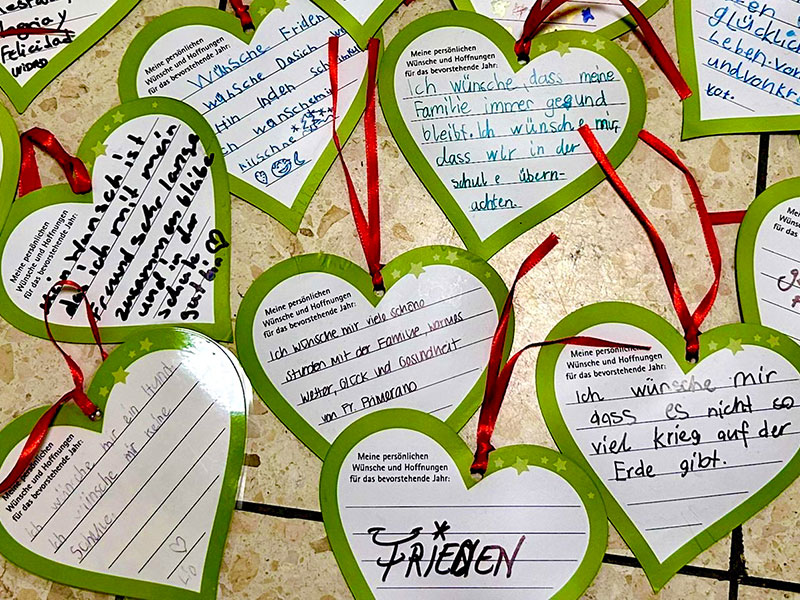 Alegria y
Felicidad
Meine persönlichen
Wünsche und Hoffnungen
für das bevorstehende Jahr:
Wünsche Friden
wünsche Dasich
Hin inden sch
ich wanschemir
Meine persönlichen
Wünsche und Hoffnungen
für das bevorstehende Jahr:
Ich wünsche, dass meine
Familie immer gesund
bleibt. Ich wünsche mir,
dass wir in der
schule übern-
achten.
glücklich
Leben
und von
Meine persönlichen
Wünsche und Hoffnungen
für das bevorstehende Jahr:
Mein Wunsch ist
das ich mit mein
Freund sehr lange
zusammen bleibe
und in der
schule
gut bin
Meine persönlichen
Wünsche und Hoffnungen
für das bevorstehende Jahr:
Ich wünsche mir viele schöne
Stunden mit der Familie, warmes
Wetter, Glück und Gesindheit
von Fr. Pomerano
Meine persönlichen
Wünsche und Hoffnungen
für das bevorstehende Jahr:
Ich wünsche mir
dass es nicht so
viel krieg auf der
Erde gibt.
Meine persönlichen
Wünsche und Hoffnungen
für das bevorstehende Jahr:
Ich wünsche mir ein Hund
Ich wünsche mir keine
schule
Meine persönlichen
Wünsche und Hoffnungen
für das bevorstehende Jahr:
FRIEDEN